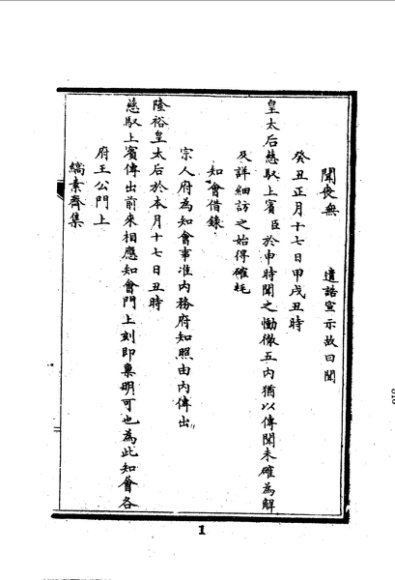 聞喪無　遺誥宣示故曰聞
癸丑正月十七日甲戌丑時
皇太后慈馭上賓臣於申時聞之慟徹五內猶以傳聞未確為解
及詳細訪之始得確耗
知會借錄
宗人府為知會事准內務府知照由內傳出
隆裕皇太后於本月十七日丑時
慈馭上賓傳出前來相應知會門上刻即稟明可也為此知會各
府王公門上
縞素齊集
1